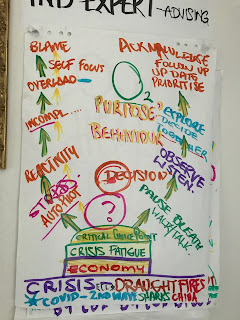 EXPERT - ADVISING
BLAME
SELF FOCUS
OVERLOAD
INCOMPL...
REACTIVITY
STRESS
AUTO PILOT
ACKNOWLEDGE
FOLLOW UP
UPDATE
PRIORITISE
O2
PURPOSE?
BEHAVIOUR
EXPLORE
DECIDE
TOGETHER
OBSERVE
LISTEN.
DECISION
?
PAUSE BREATH
CRITICAL CHOICE POINT
CRISIS FATIGUE
ECONOMY
CRISIS DRAUGHT FIRES
COVID-2ND WAVE SHARKS CHINA